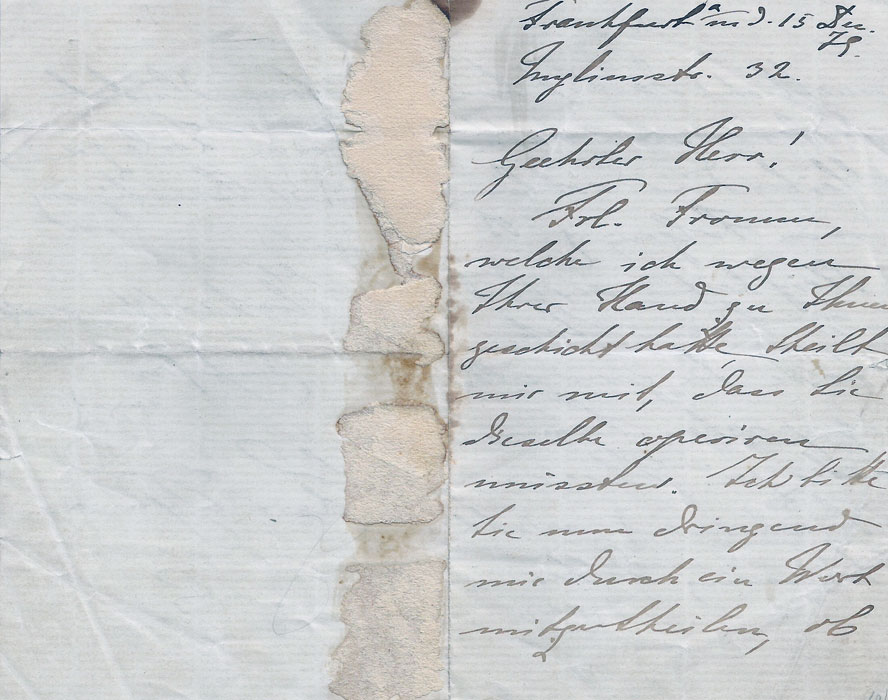 Frankfurt a m d. 15 Dec.
79.
str. 32.
Geehrter Herr!
Frl. Fromm,
welche ich wegen
Ihrer Hand zu Ihnen
geschickt hatte, theilt
mir mit, dass Sie
dieselbe operiren
müssten. Ich bitte
Sie nun dringend
mir durch ein Wort
mitzutheilen, ob